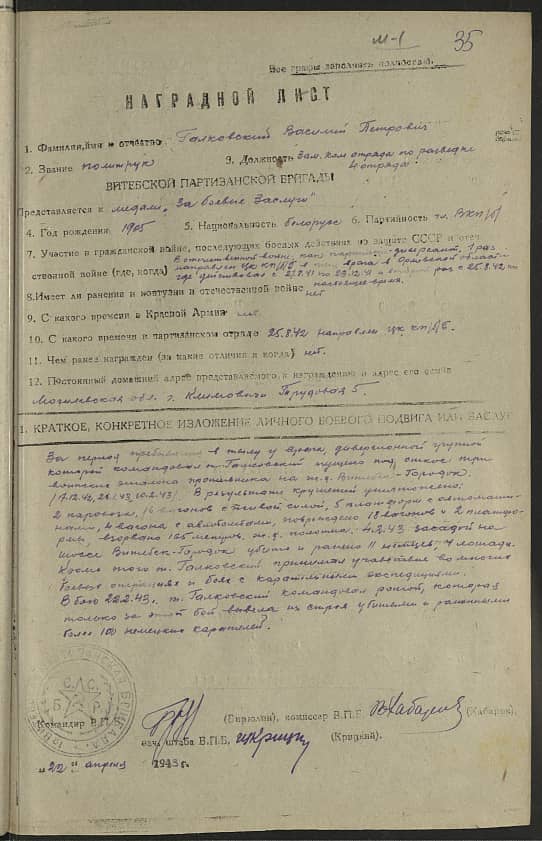 М-1 35
Все графы заполнять полностью.
НАГРАДНОЙ ЛИСТ
1. Фамилия, имя и отчество Галковский Василий Петрович
2. Звание политрук 3. Должность Зам. ком отряда по разведке
4 отряда
ВИТЕБСКОЙ ПАРТИЗАНСКОЙ БРИГАДЫ
Представляется к медали "За боевые Заслуги"
4. Год рождения 1905 5. Национальность белорус 6 Партийность чл. ВКП/б/
7. Участие в гражданской войне, последующих боевых действиях по защите СССР и отеч
ственной войне (где, когда) В отечественной войне, как диверсант, 1 раз
направлен ЦК КП/б/Б в тыл врага в Орловской области
где действовал с 2.9.41 по 23.12.41 и второй раз с 25.8.42 по
настоящее время.
8. Имеет ли ранения и контузии в отечественной войне нет
9. С какого времени в Красной Армии нет
10. С какого времени в партизанском отряде 25.8.42 направлен ЦК КП/б/Б.
11. Чем ранее награжден (за какие отличия и когда) нет.
12. Постоянный домашний адрес представляемого к награждению и адрес его семьи
Могилевская обл. г. Климовичи Трудовая 5.
1. КРАТКОЕ, КОНКРЕТНОЕ ИЗЛОЖЕНИЕ ЛИЧНОГО БОЕВОГО ПОДВИГА ИЛИ ЗАСЛУГ
За период пребывания в тылу у врага, диверсионной группой
которой командовал т. Галковский пущено под откос три
воинских эшелона противника на ж.д. Витебск-Городок.
В результате крушений уничтожено:
2 паровоза, вагонов с живой силой, 5 платформ с автомаши-
нами, 4 вагона с повреждено 18 вагонов и 2 платфор-
мы, взорвано 165 метров ж.д. полотна. 4.3.43 засадой на
шоссе Витебск-Городок убито и ранено 11 немцев, 4 лошади.
Кроме того т. Галковский принимал участие во многих
боевых операциях и боях с карательными экспедициями.
В бою 22.2.43. т. Галковский командовал ротой, которая
только за этот бой вывела из строя убитыми и раненными
более 100 немецких карателей.
Командир В.П.Б. (Бирюлин), комиссар В.П.Б. (Хабаров).
нач. штаба В.П.Б. (Крицкий).
"22" апреля 1943 г.